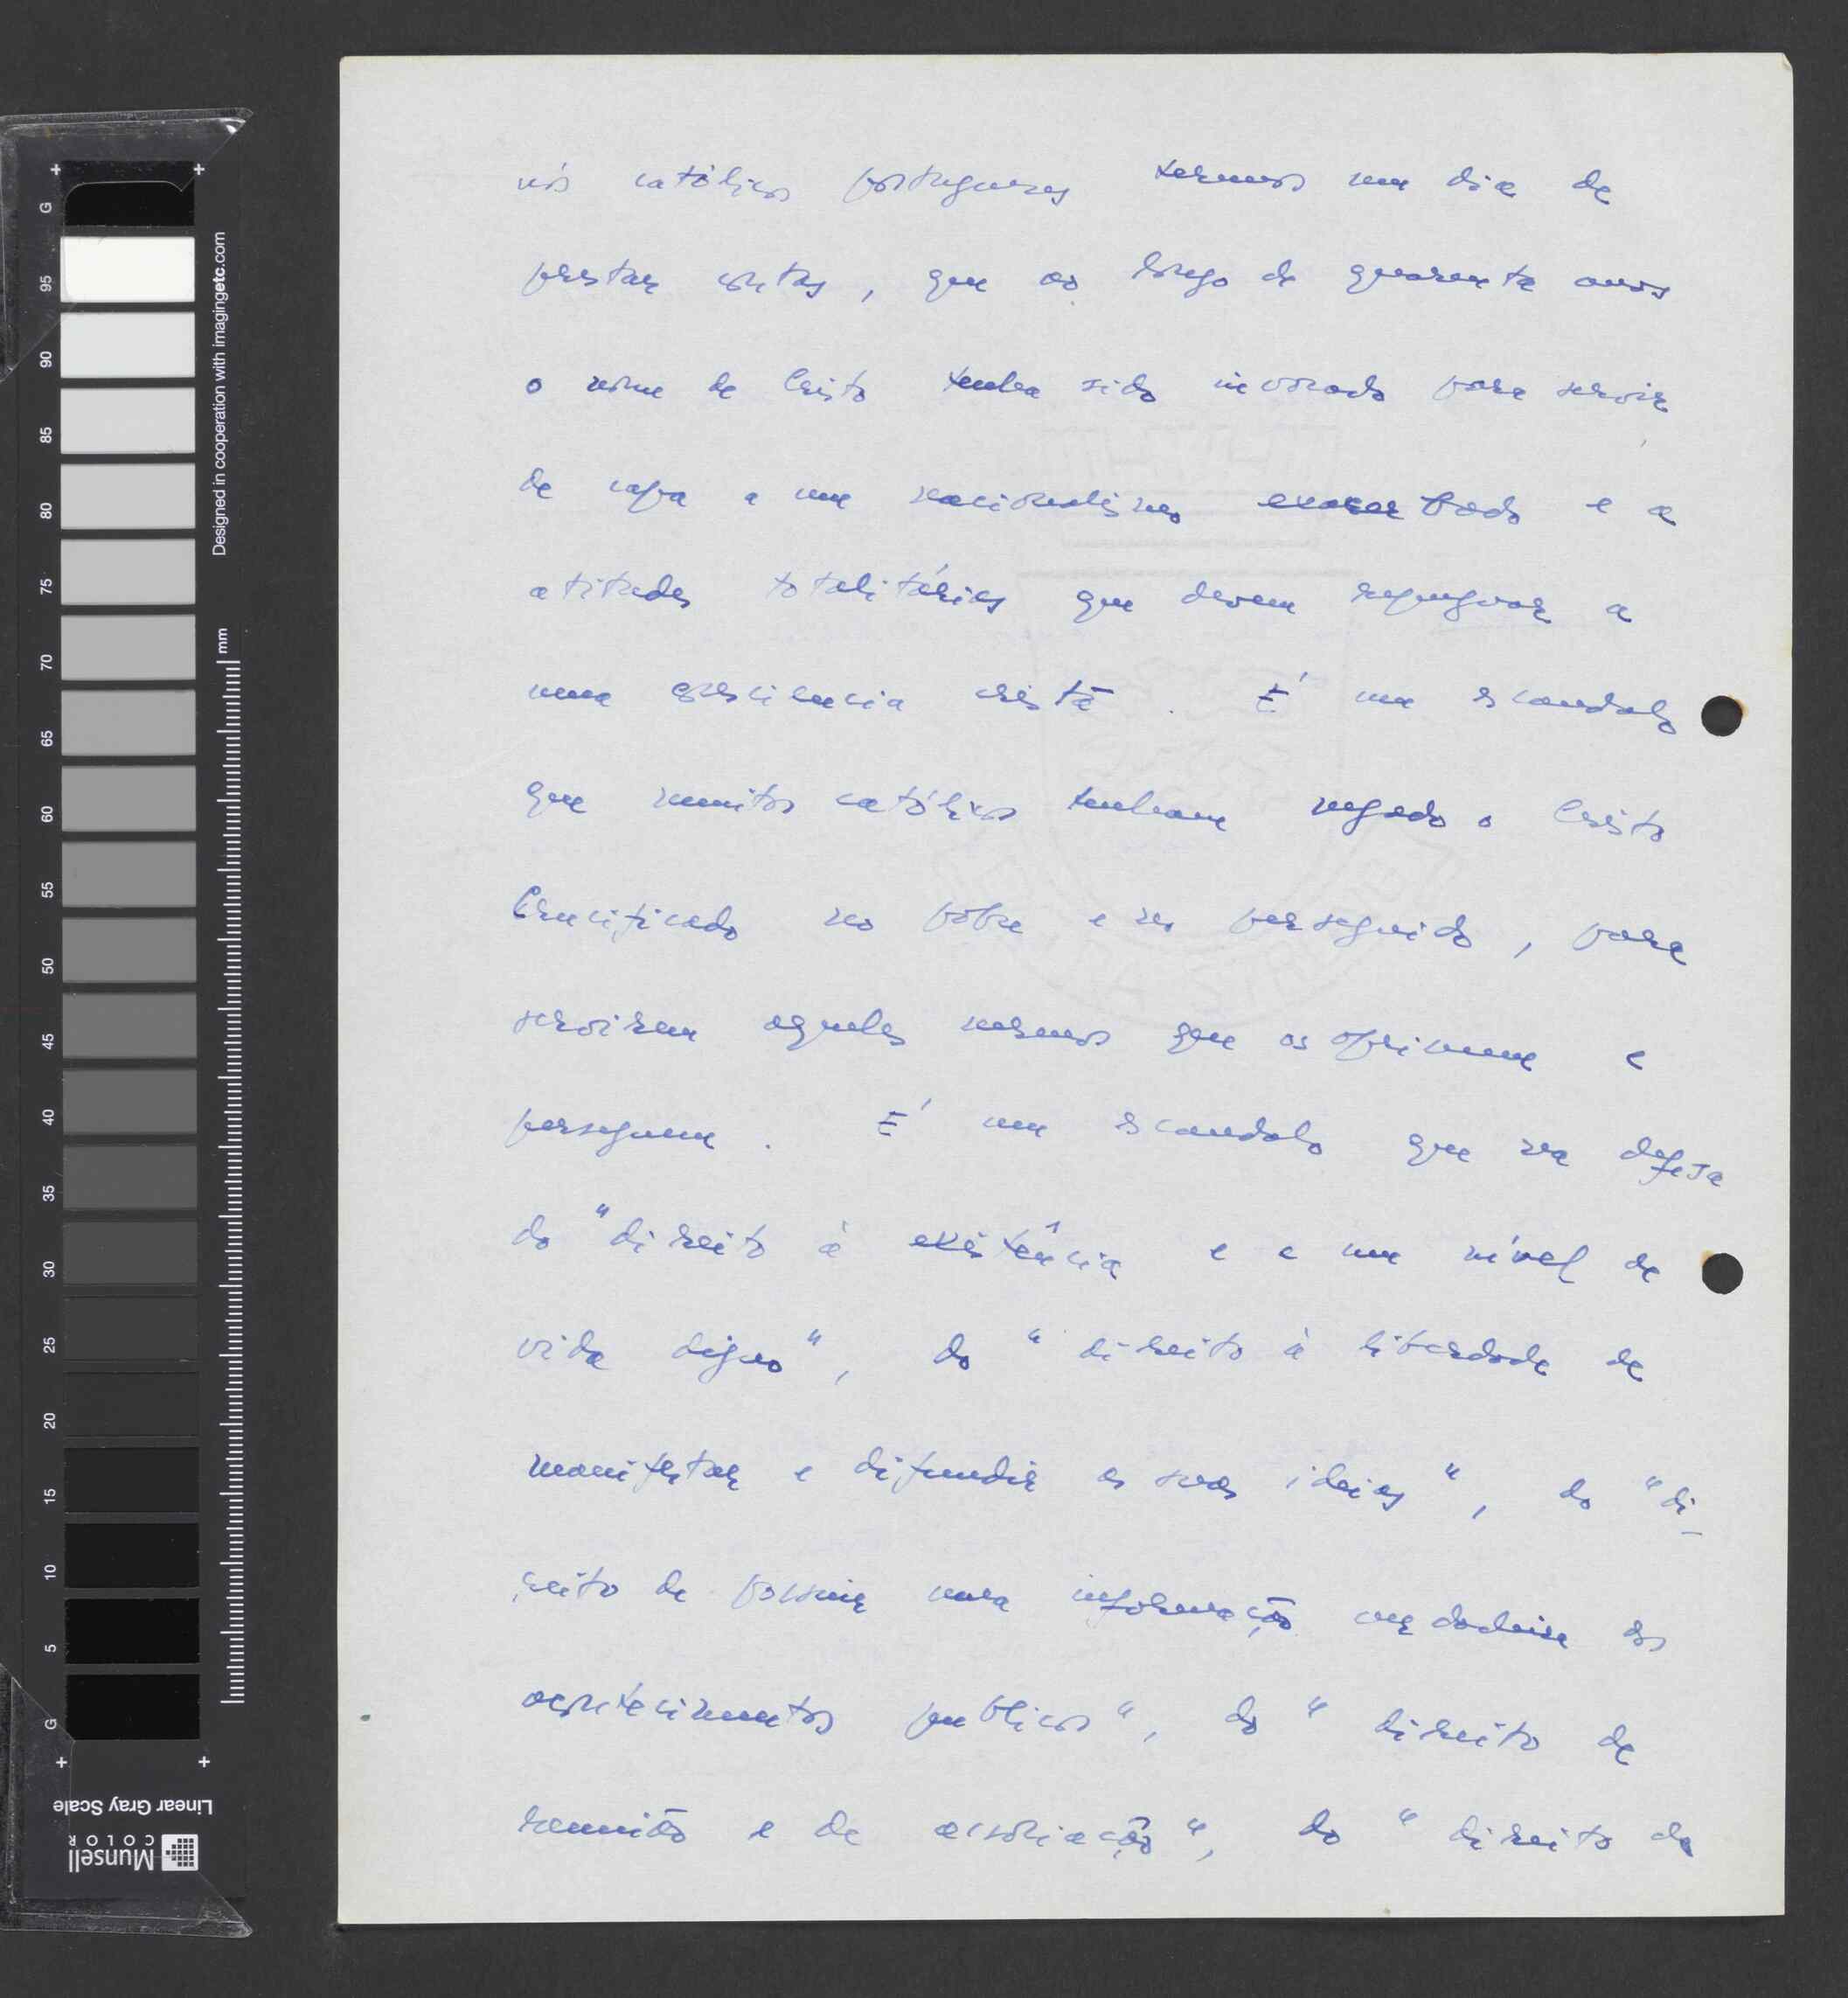 nós católicos portugueses termos um dia de
prestar contas, que ao longo de quarenta anos
o nome de Cristo tenha sido invocado para servir
de capa a um nacionalismo exacerbado e a
atitudes totalitárias que devem repugnar a
uma consciencia cristã. É um escandalo
que muitos católicos tenham negado o Cristo
Crucificado no pobre e no perseguido, para
servirem aqueles mesmos que os oprimem e
perseguem. É um escandalo que na defesa
do "direito à existência e a um nível de
vida digno", do "direito à liberdade de
manifestar e difundir as suas ideias", do "di-
reito de possuir uma informação verdadeira dos
acontecimentos publicos", do "direito de
reunião e de associação", do "direito de
G
95
90
85
80
75
70
65
60
55
50
45
40
35
30
25
20
15
10
5
G
Designed in cooperation with imagingetc.com
mm
Linear Gray Scale
Munsell
COLOR